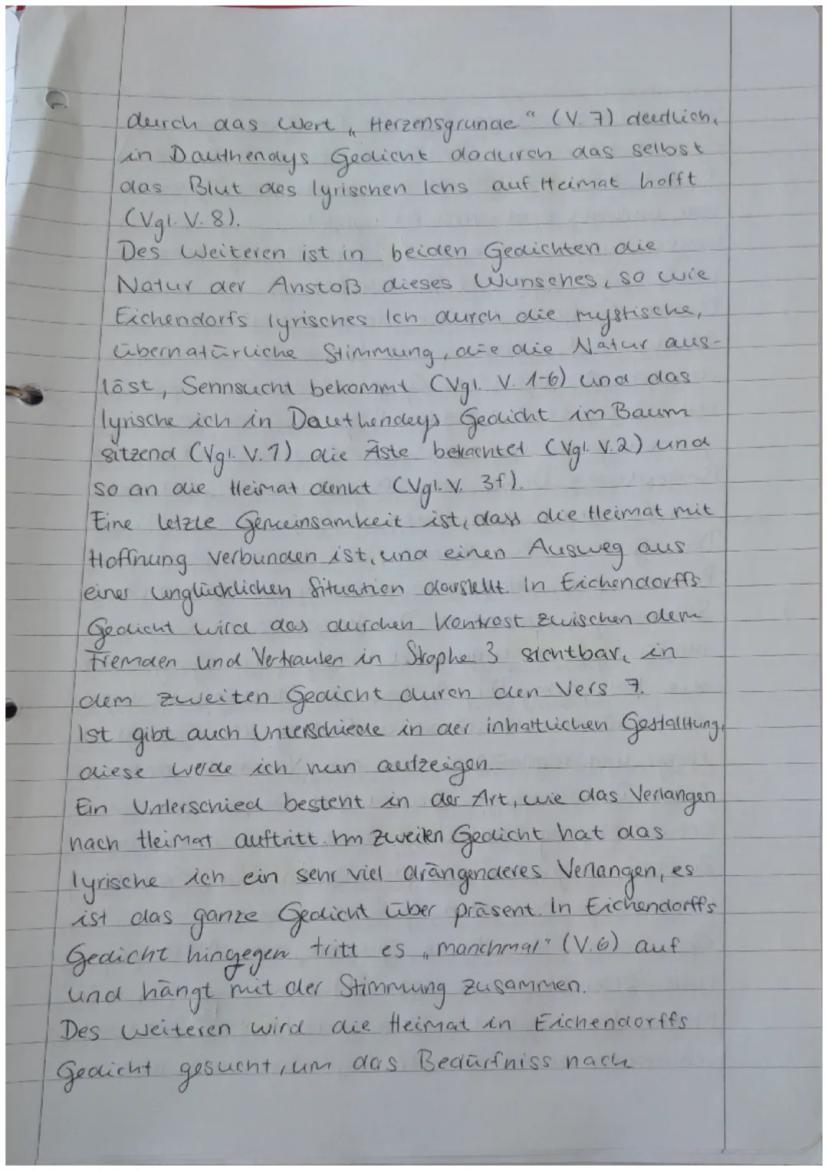 durch das Wort „Herzensgrunde" (V. 7) deutlich,
in Dauthendays Gedicht dadurch das selbst
das Blut des lyrischen Ichs auf Heimat hofft
(Vgl. V. 8).
Des Weiteren ist in beiden Gedichten die
Natur der Anstoß dieses Wunsches, so wie
Eichendorfs lyrisches Ich durch die mystische,
übernatürliche Stimmung, die die Natur aus-
löst, Sennsucht bekommt (Vgl. V. 1-6) und das
lyrische ich in Dauthendeys Gedicht im Baum
sitzend (Vgl. V. 1) die Äste betrachtet (Vgl. V. 2) und
so an die Heimat denkt (Vgl. V. 3f).
Eine letzte Gemeinsamkeit ist, dass die Heimat mit
Hoffnung verbunden ist, und einen Ausweg aus
einer unglücklichen Situation darstellt. In Eichendorffs
Gedicht wird das durchen Kontrast zwischen dem
Fremden und Vertrauten in Stophe 3 sichtbar, in
dem zweiten Gedicht durch den Vers 7.
Ist gibt auch Unterschiede in der inhaltlichen Gestalltung,
diese werde ich nun aufzeigen.
Ein Unterschied besteht in der Art, wie das Verlangen
nach Heimat auftritt. Im zweiten Gedicht hat das
lyrische ich ein sehr viel drängenderes Verlangen, es
ist das ganze Gedicht über präsent. In Eichendorffs
Gedicht hingegen tritt es „manchmal" (V. 6) auf
und hängt mit der Stimmung zusammen.
Des weiteren wird die Heimat in Eichendorffs
Gedicht gesucht, um das Bedürfniss nach